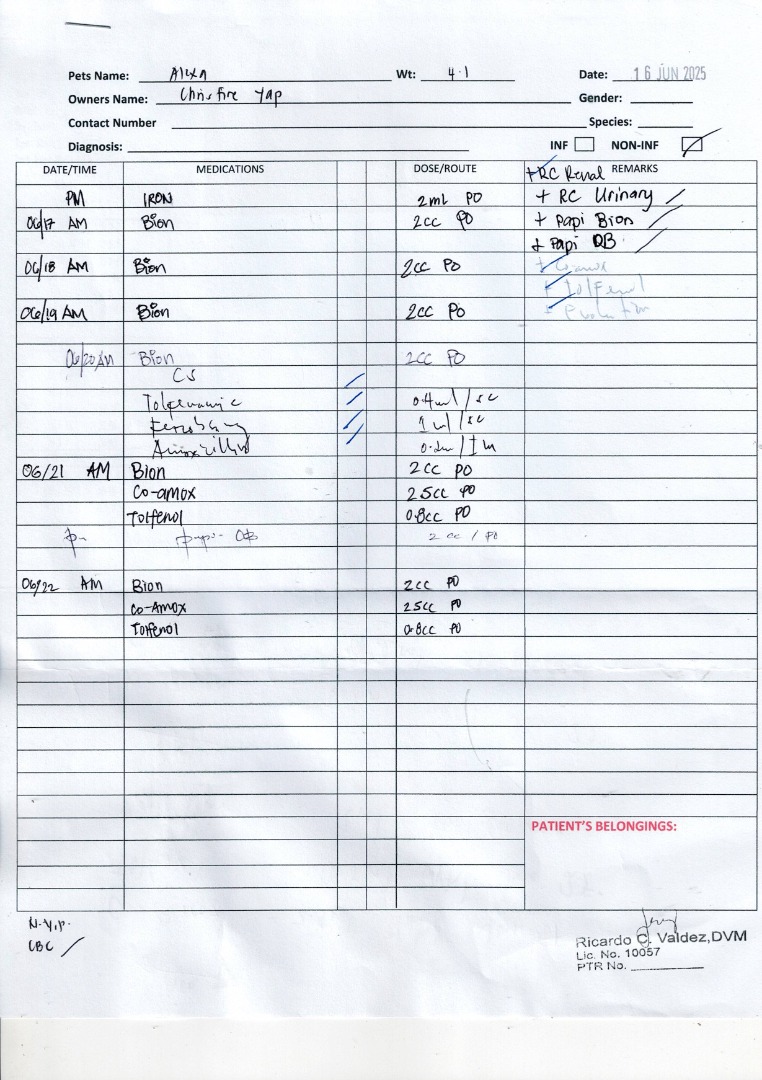 Pets Name: Alexa Wt: 4.1 Date: 16 JUN 2025
Owners Name: Chrisfire Yap Gender:
Contact Number Species:
Diagnosis: INF NON-INF
DATE/TIME MEDICATIONS DOSE/ROUTE REMARKS
+ RC Renal
PM IRON 2mL PO + RC Urinary
06/17 AM Bion 2cc PO + Papi Bion
+ Papi OB
06/18 AM Bion 2cc PO
+ Tolfenol
06/19 AM Bion 2cc PO
06/20 AM Bion 2cc PO
CS
0.4ml / SC
1ml / SC
06/21 AM Bion 2cc PO
Co-amox 2.5cc PO
Tolfenol 0.8cc PO
papi- OB 2 cc / PO
06/22 AM Bion 2cc PO
Co-Amox 2.5cc PO
Tolfenol 0.8cc PO
PATIENT'S BELONGINGS:
CBC
Ricardo C. Valdez, DVM
Lic. No. 10057
PTR No.